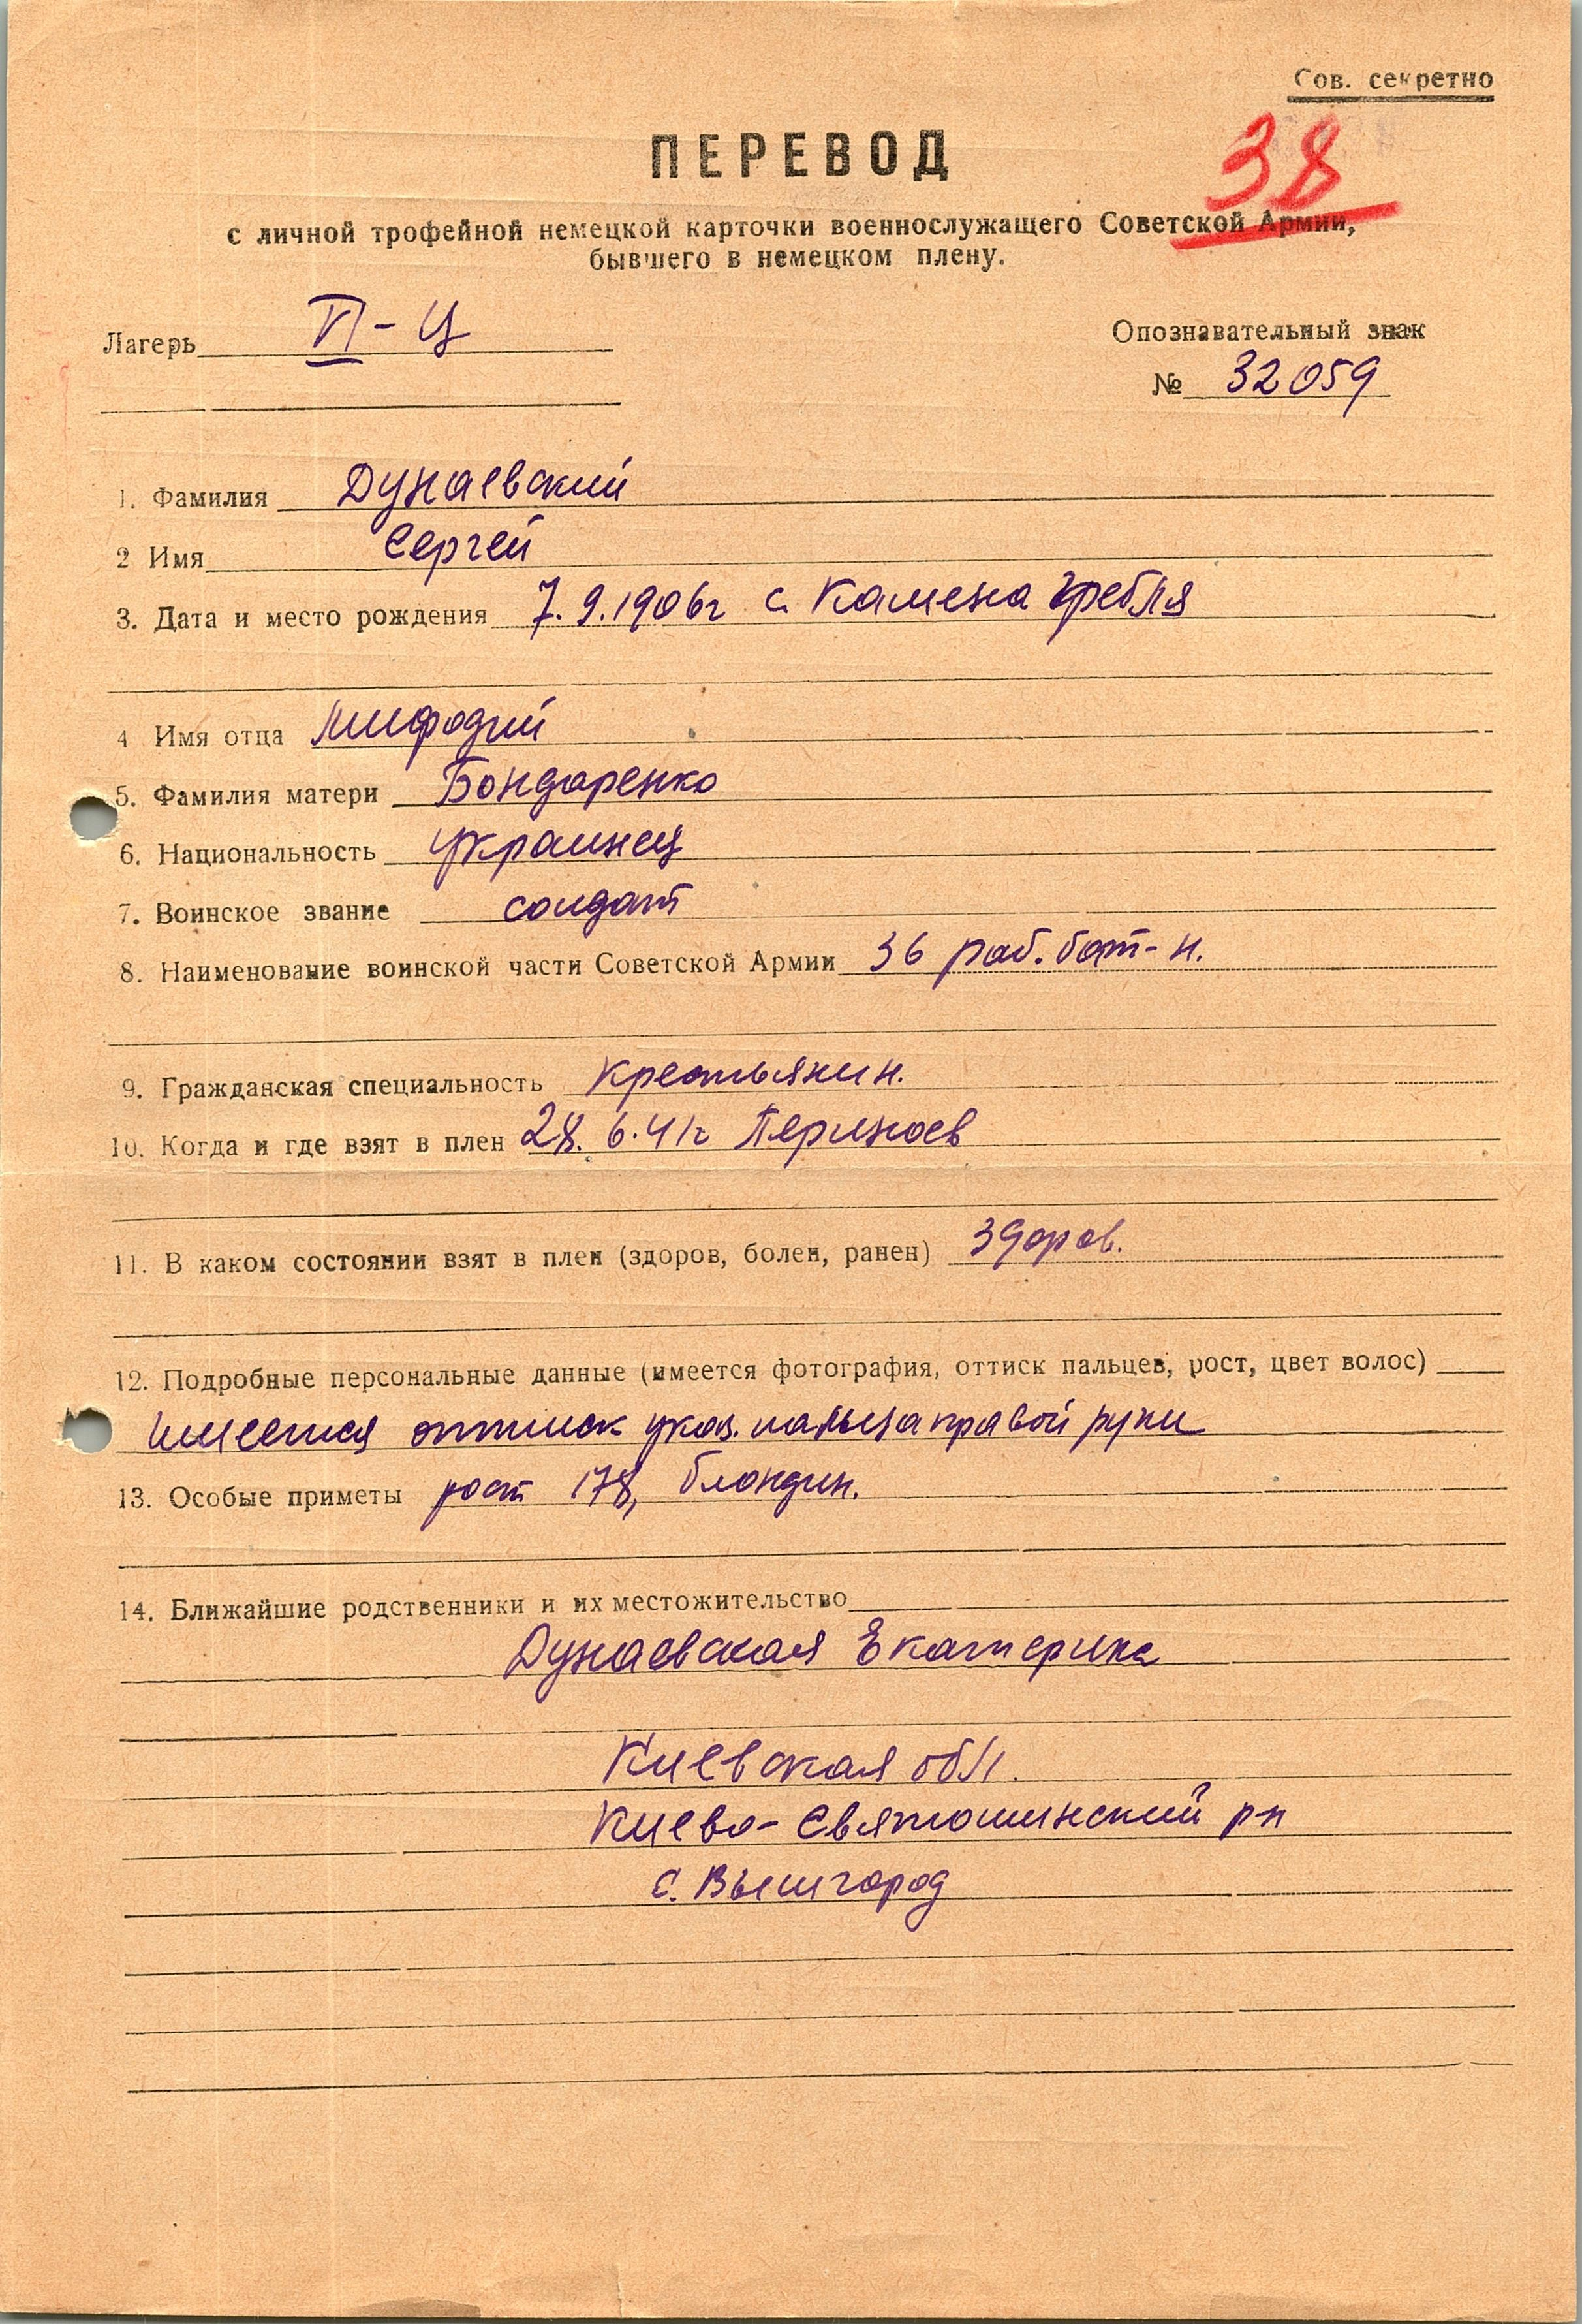 Сов. секретно
38
ПЕРЕВОД
с личной трофейной немецкой карточки военнослужащего Советской Армии,
бывшего в немецком плену.
Лагерь VI-Ц
Опознавательный знак
№ 32059
1. Фамилия Дунаевский
2 Имя Сергей
3. Дата и место рождения 7.9.1906г с. Камена Гребля
4 Имя отца Мифодий
5. Фамилия матери Бондаренко
6. Национальность украинец
7. Воинское звание солдат
8. Наименование воинской части Советской Армии 36 раб. бат-н.
9. Гражданская специальность крестьянин.
10. Когда и где взят в плен 28.6.41г
11. В каком состоянии взят в плен (здоров, болен, ранен) здоров.
12. Подробные персональные данные (имеется фотография, оттиск пальцев, рост, цвет волос)
имеется оттиск указ. пальца правой руки
13. Особые приметы рост 178, блондин.
14. Ближайшие родственники и их местожительство
Дунаевская Екатерина
Киевская обл.
Киево-Святошинский р-н
с. Вышгород